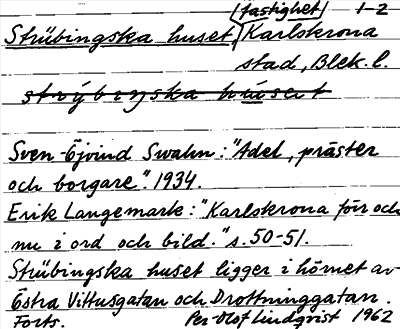 (fastighet) 1-2
Strübingska huset Karlskrona
stad, Blek. l.
Sven-Öjvind Swahn: "Adel, präster
och borgare". 1934.
Erik Langemark: "Karlskrona förr och
nu i ord och bild." s. 50-51.
Strübingska huset ligger i hörnet av
Östra Vittusgatan och Drottninggatan.
Forts. Per-Olof Lindqvist 1962